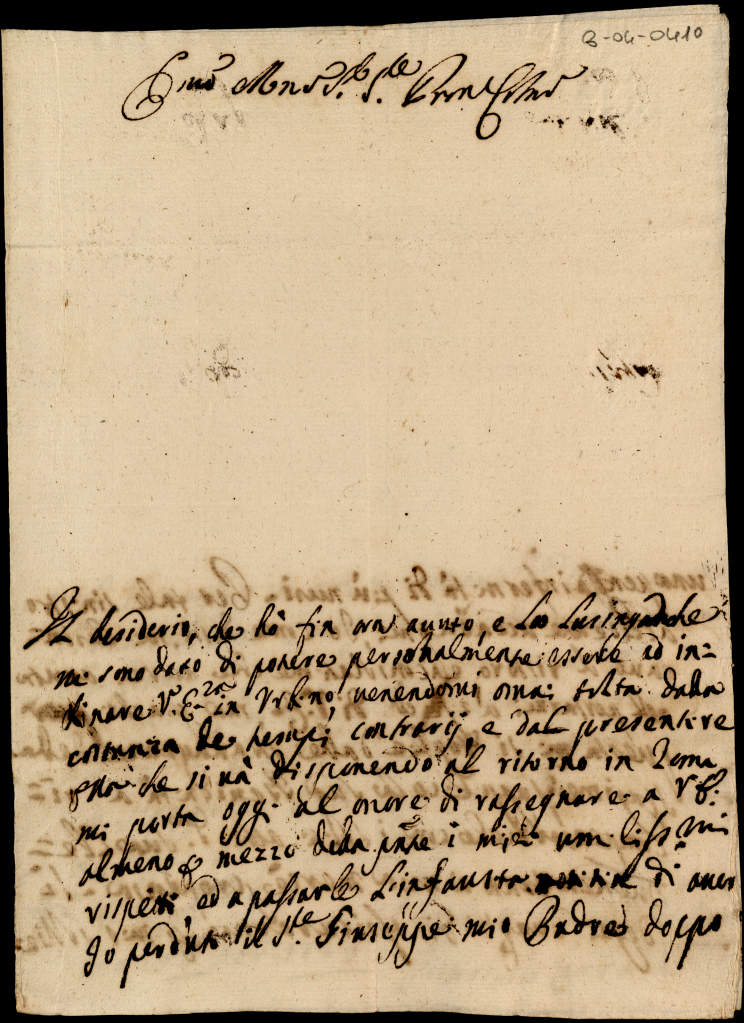 B-04-0410
Em̃o Mñs Sr. Sr. Prone
Il desiderio, che hò fin ora auuto, e La Lusinga che
mi sono dato di potere personalmente essere ad in=
chinare V. E.za in Vrbino, venendomi ora tolta dalla
costanza de tempi contrarij, e dal presentire
che si uà disponendo al ritorno in Roma
mi porta oggi al onore di rassegnare a V. E.
almeno p mezzo della pñte i miei umilissimi
rispetti, ed a passarle L'infausta notitia di auer
Io perduto il Sr. Giuseppe mio Padre doppo